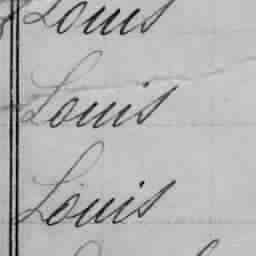 Louis
Louis
Louis